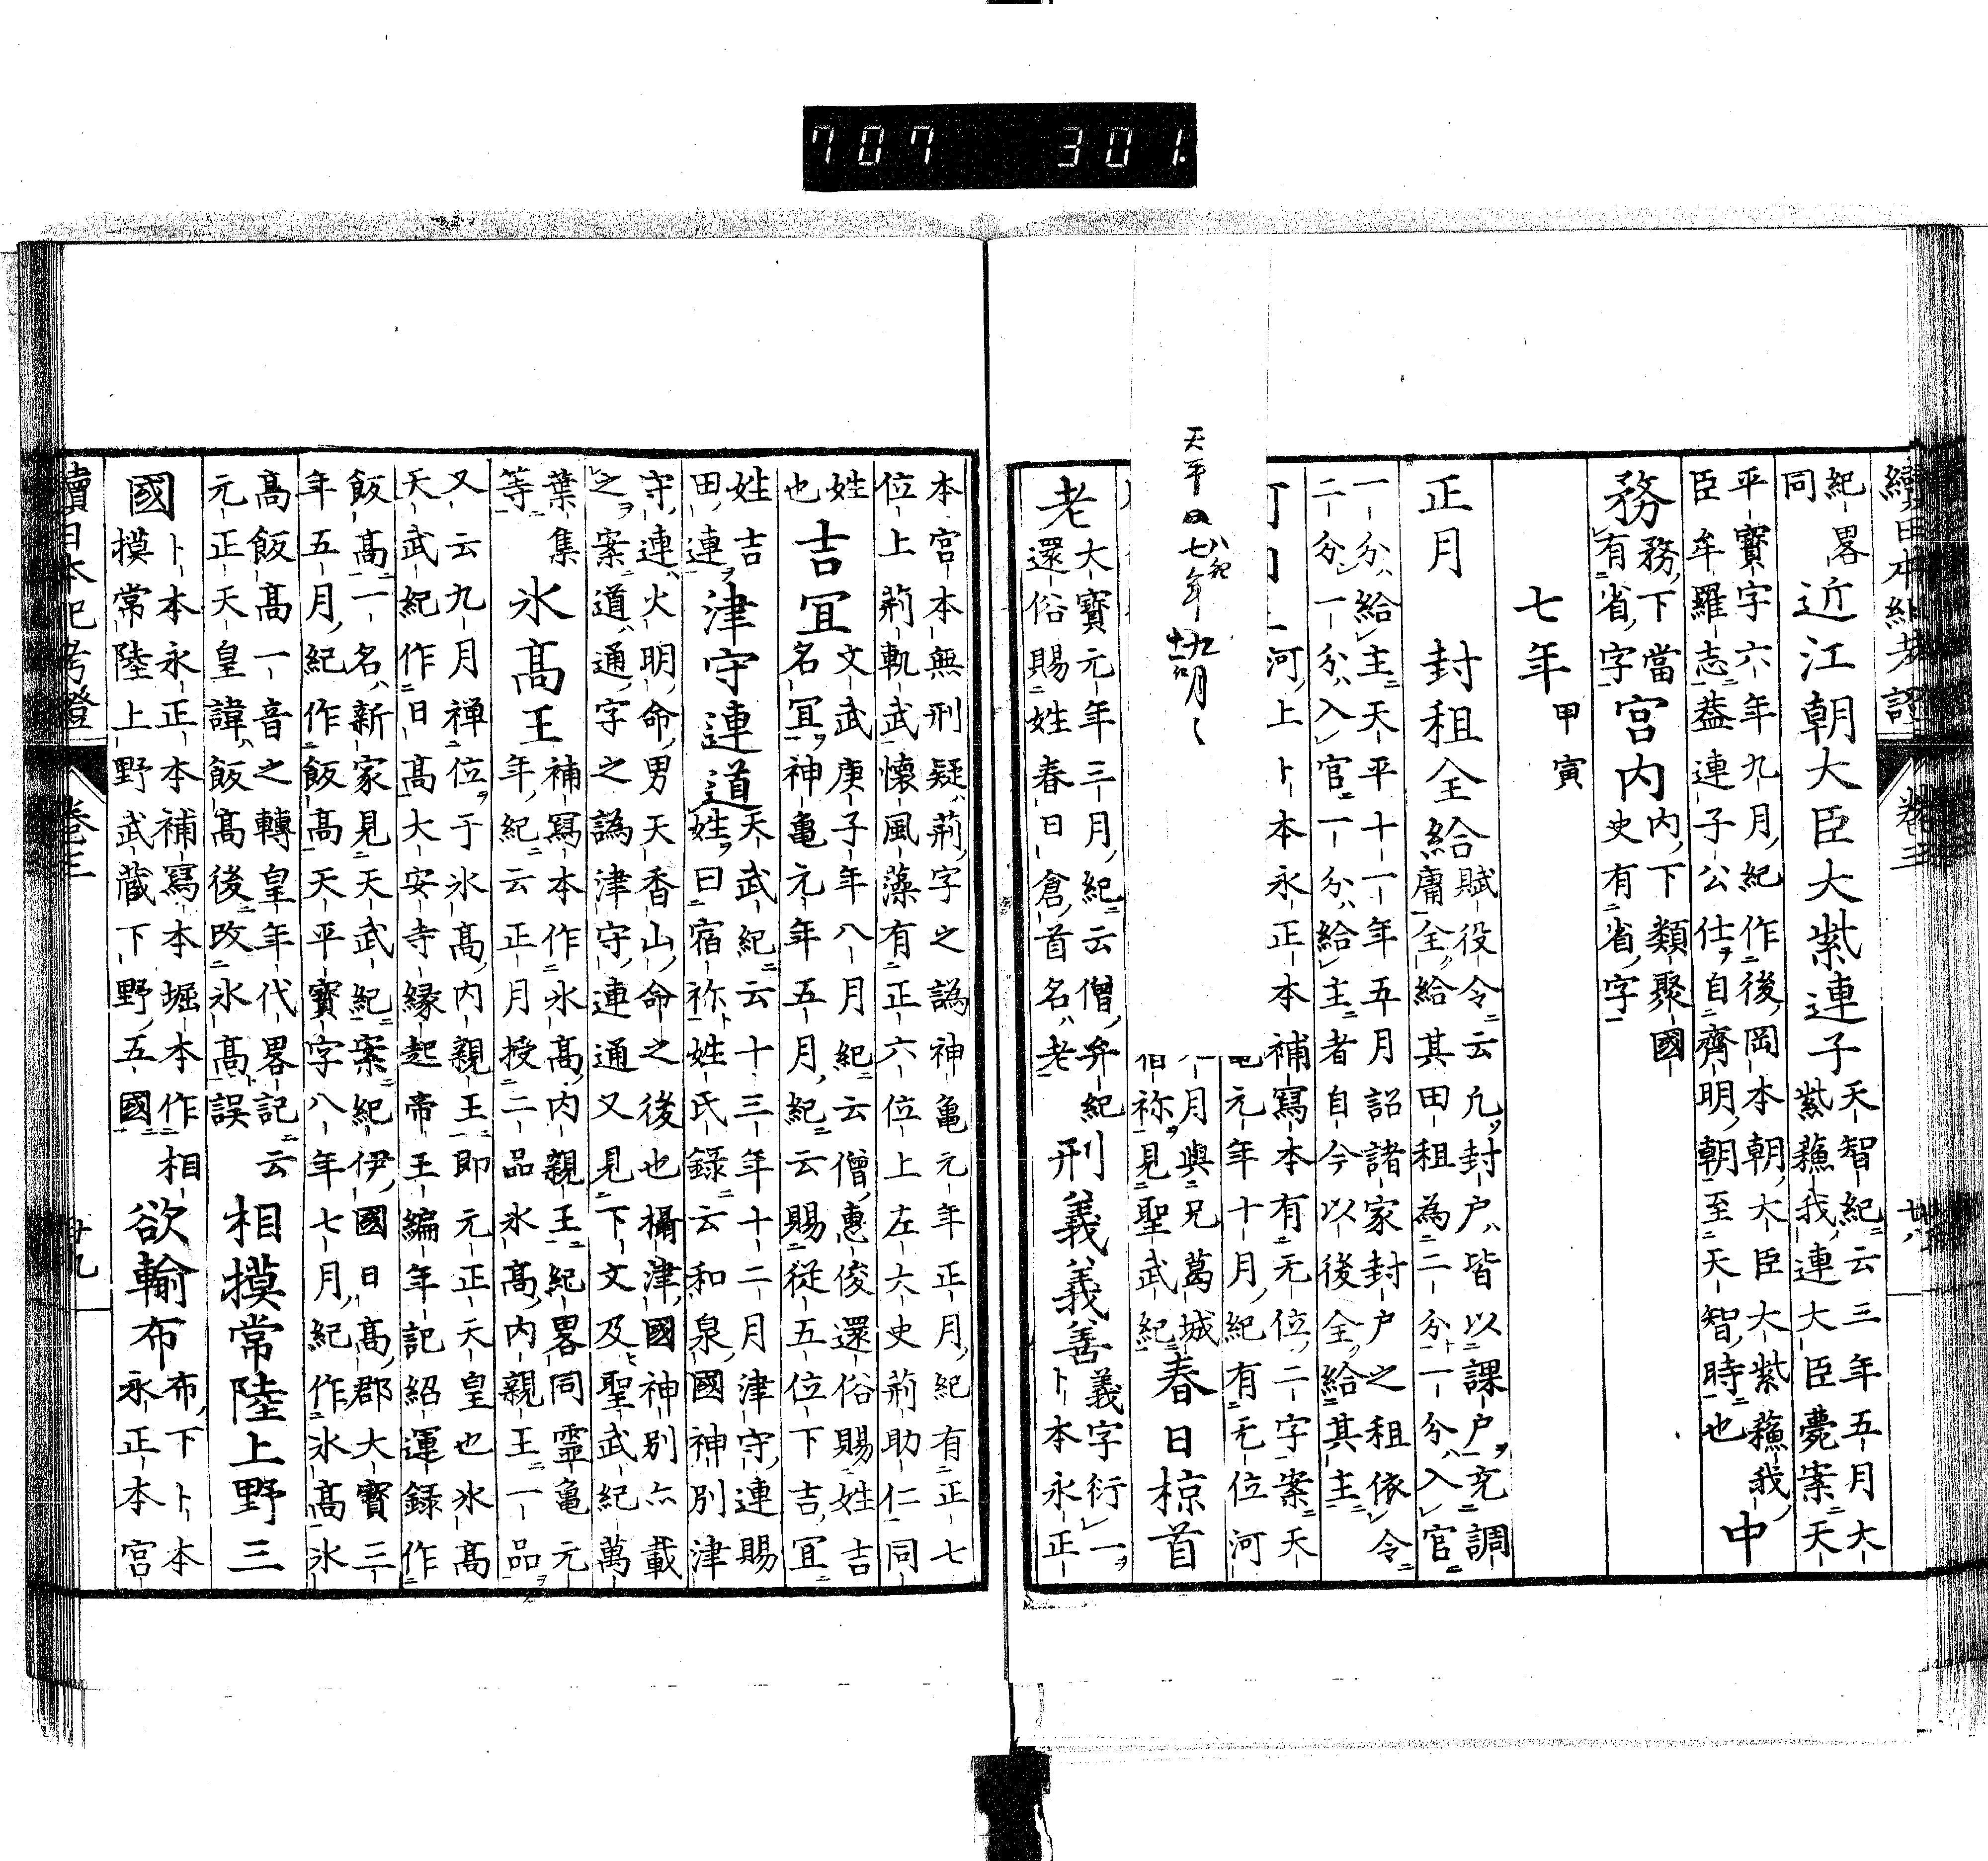 707 301
續日本紀考證 卷三 廿八
紀畧
同
近江朝大臣大紫連子
天智紀云三年五月大
紫蘓我連大臣薨案天
平寶字六年九月紀作後岡本朝大臣大紫蘓我
臣牟羅志葢連子公仕自齊明朝至天智時也
中
務
務下當
有省字
宮内
内下類聚國
史有省字
七年甲寅
正月
封租全給
賦役令云凡封戸皆以課戸充調
庸全給其田租為二分一分入官
一分給主天平十一年五月詔諸家封戸之租依令
二分一分入官一分給主者自今以後全給其主
河上卜本永正本補寫本有元位二字案天
元年十月紀有无位河
天平四七年八紀九月
月與兄葛城
祢見聖武紀
春日椋首
老
大寶元年三月紀云僧弁紀
還俗賜姓春日倉首名老
刑義義善
義字衍一
卜本永正
本宮本無刑疑荊字之譌神亀元年正月紀有正七
位上荊軌武懷風藻有正六位上左大史荊助仁同
姓
也
吉宜
文武庚子年八月紀云僧惠俊還俗賜姓吉
名宜神亀元年五月紀云賜從五位下吉宜
姓吉
田連
津守連道
天武紀云十三年十二月津守連賜
姓曰宿祢姓氏録云和泉國神別津
守連火明命男天香山命之後也攝津國神別六載
之案道通字之譌津守連通又見下文及聖武紀萬
葉集
等
氷髙王
補寫本作氷髙内親王紀畧同靈亀元
年紀云正月授二品氷髙内親王一品
又云九月禅位于氷髙内親王即元正天皇也氷髙
天武紀作日髙大安寺縁起帝王編年記紹運録作
飯髙一名新家見天武紀案紀伊國日髙郡大寳三
年五月紀作飯髙天平寶字八年七月紀作氷髙氷
髙飯髙一音之轉皇年代畧記云
元正天皇諱飯髙後改氷髙誤
相摸常陸上野三
國
卜本永正本補寫本堀本作相
摸常陸上野武蔵下野五國
欲輸布
布下卜本
永正本宮
續日本紀考證 卷三 廿九